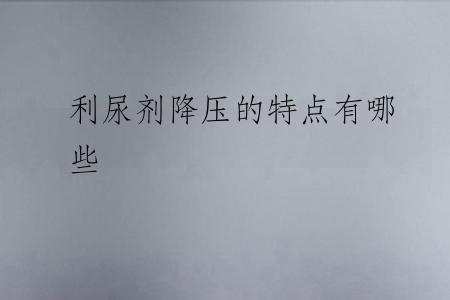 利尿剂降压的特点有哪
些